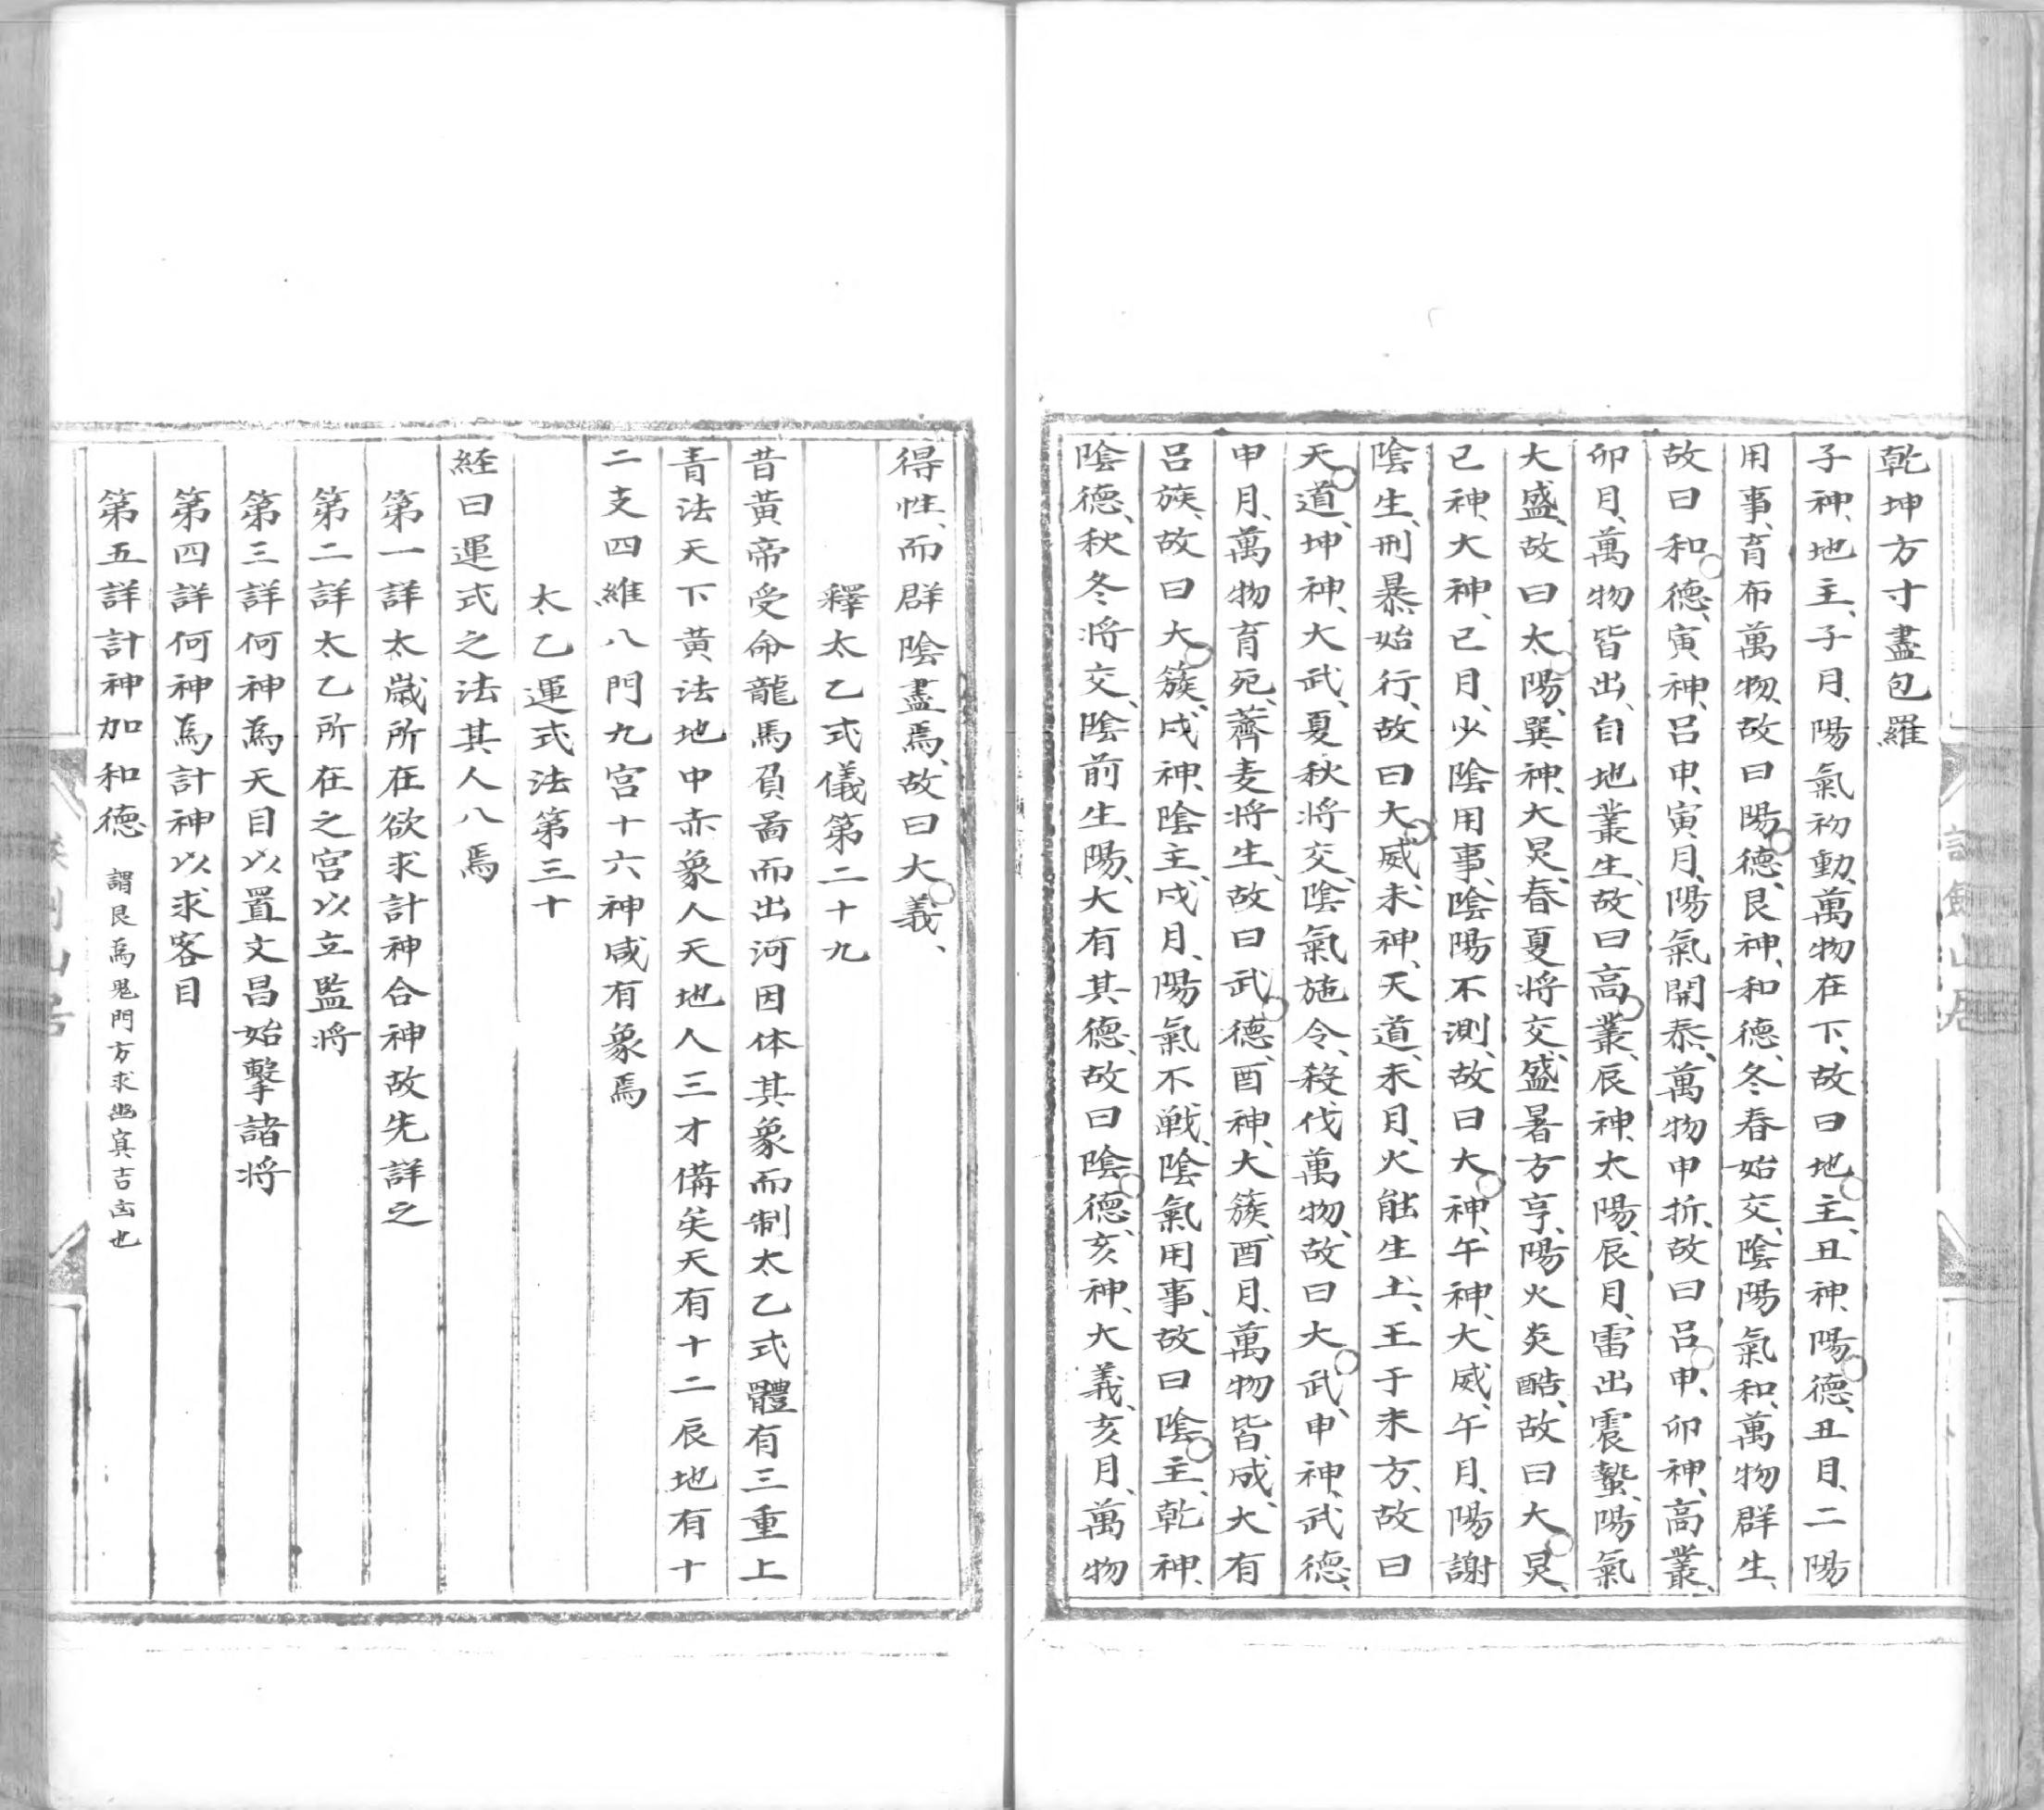 乾坤方寸盡包羅
子神、地主、子月、陽氣初動、萬物在下、故曰地主、丑神、陽德、丑月、二陽
用事、育布萬物、故曰陽德、艮神、和德、冬春始交、陰陽氣和、萬物群生、
故曰和德、寅神、呂申、寅月、陽氣開泰、萬物申折、故曰呂申、卯神、高叢、
卯月、萬物皆出、自地叢生、故曰高叢、辰神、太陽、辰月、雷出震蟄、陽氣
大盛、故曰太陽、巽神、大炅、春夏將交、盛暑方亨、陽火炎酷、故曰大炅、
巳神、大神、巳月、少陰用事、陰陽不測、故曰大神、午神、大威、午月、陽謝
陰生、刑暴始行、故曰大威、未神、天道、未月、火能生土、王于未方、故曰
天道、坤神、大武、夏秋將交、陰氣施令、殺伐萬物、故曰大武、申神、武德、
申月、萬物育宛、薺麦將生、故曰武德、酉神、大簇、酉月、萬物皆成、大有
呂族、故曰大簇、戌神、陰主、戌月、陽氣不戦、陰氣用事、故曰陰主、乾神、
陰德、秋冬將交、陰前生陽、大有其德、故曰陰德、亥神、大義、亥月、萬物
得性、而群陰盡焉、故曰大義、
釋太乙式儀第二十九
昔黃帝受命龍馬負啚而出河因体其象而制太乙式體有三重上
青法天下黃法地中赤象人天地人三才備矣天有十二辰地有十
二支四維八門九宮十六神咸有象焉
太乙運式法第三十
経曰運式之法其人八焉
第一詳太歲所在欲求計神合神故先詳之
第二詳太乙所在之宮以立監將
第三詳何神為天目以置文昌始擊諸將
第四詳何神為計神以求客目
第五詳計神加和德 謂艮為鬼門方求幽冥吉凶也